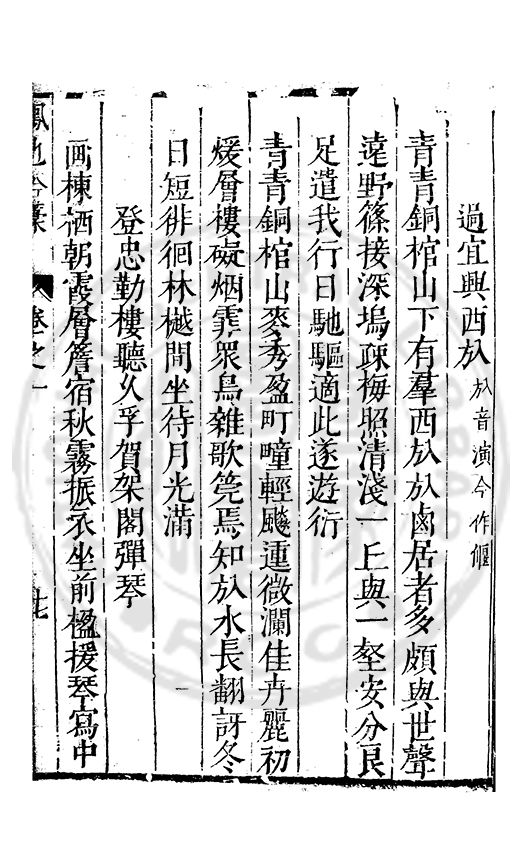 過宜興西㫃㫃音演今作㫃
青青銅棺山下有羣西㫃㫃鹵居者多頗與世聲
遠野篠接深塢疎梅照清淺一丘與一壑安分艮
足遣我行日馳驅適此遂遊衍
青青銅棺山麥秀盈町疃輕颸連微瀾佳卉麗初
煖層樓礙烟霏眾鳥雜歌筦焉知㫃水長翻訝冬
日短徘徊林樾間坐待月光滿
登忠勤樓聽久孚賀架閣彈琴
画棟栖朝霞層簷宿秋霧振衣坐前楹援琴寫中
鳳池吟藁
卷之一
十七